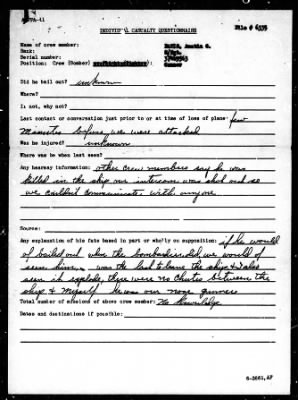 File # 6535
INDIVIDUAL CASUALTY QUESTIONNAIRE
Name of crew member:
Rank:
Serial number:
Position: Crew (Bomber)
Did he bail out? unknown
Where?
If not, why not?
Last contact or conversation just prior to or at time of loss of plane: few
Minutes before we were attacked
Was he injured? unknown
Where was he when last seen?
Any hearsay information: other crew members say he was
killed in the ship our intercom was shot out so
we couldn't communicate with anyone
Source:
Any explanation of his fate based in part or wholly on supposition: if he would
of bailed out when the bombardier did, we would of
seen him. I was the last to leave the ship & I also
seen it explode, there were no chutes between the
ship & myself. He was our nose gunner
Total number of missions of above crew member: No knowledge
Dates and destinations if possible:
6-3861,AF